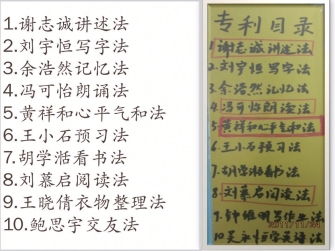 1.谢志诚讲述法
2.刘宇恒写字法
3.余浩然记忆法
4.冯可怡朗诵法
5.黄祥和心平气和法
6.王小石预习法
7.胡学湉看书法
8.刘慕启阅读法
9.王晓倩衣物整理法
10.鲍思宇交友法
专利目录
1.谢志诚讲述法
2.刘宇恒写字法
3.余浩然记忆法
4.冯可怡朗读法
5.黄祥和心平气和法
6.王小石预习法
7.胡学湉看书法
8.刘慕启阅读法